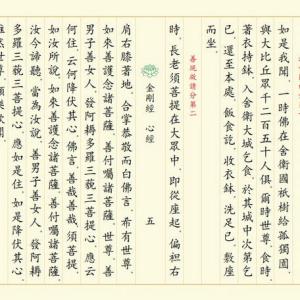 如是我聞．一時佛在舍衛國祇樹給孤獨園．
與大比丘眾千二百五十人俱．爾時世尊．食時．
著衣持缽．入舍衛大城乞食．於其城中次第乞
已．還至本處．飯食訖．收衣缽．洗足已．敷座
而坐．
善現啟請分第二
時．長老須菩提在大眾中．即從座起．偏袒右
金剛經 心經 五
肩右膝著地．合掌恭敬而白佛言．希有世尊．
如來善護念諸菩薩．善付囑諸菩薩．世尊．善
男子善女人．發阿耨多羅三藐三菩提心．應云
何住．云何降伏其心．佛言．善哉善哉．須菩提．
如汝所說．如來善護念諸菩薩．善付囑諸菩薩．
汝今諦聽．當為汝說．善男子善女人．發阿耨
多羅三藐三菩提心．應如是住．如是降伏其心．
唯然世尊．願樂欲聞．